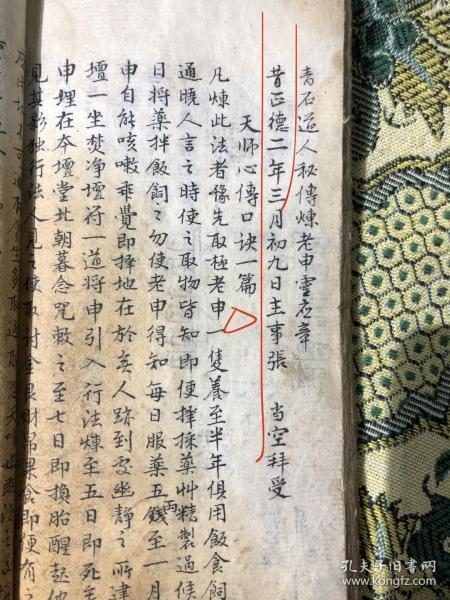 青石道人秘傳煉老申靈應章
昔正德二年三月初九日主事張 当空拜受
天师心傳口诀一篇
凡煉此法者預先取極老申一隻養至半年俱用飯食飼
通曉人言之時使之取物皆知即便擇採藥艸精製過候
日将藥拌飯飼之勿使老申得知每日服藥五錢至一月
申自能咳嗽乖覺即擇地在於亥人跡到處幽静之所建
壇一坐焚净壇符一道将申引入行法煉至五日即死
申埋在本壇堂北朝暮念咒敕之至七日即换胎醒起
見其影独行法人見之便取討金
財帛果食即便有之
孔夫子旧书网